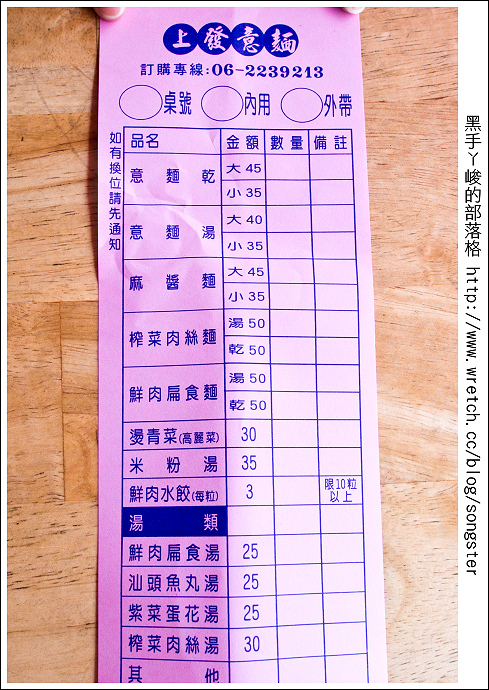 上發意麵
訂購專線:06-2239213
桌號 內用 外帶
如有換位請先通知
品名 金額 數量 備註
意麵乾 大45
小35
意麵湯 大40
小35
麻醬麵 大45
小35
榨菜肉絲麵 湯50
乾50
鮮肉扁食麵 湯50
乾50
燙青菜(高麗菜) 30
米粉湯 35
鮮肉水餃(每粒) 3 限10粒
以上
湯類
鮮肉扁食湯 25
汕頭魚丸湯 25
紫菜蛋花湯 25
榨菜肉絲湯 30
其他
黑手ㄚ峻的部落格 http://www.wretch.cc/blog/songster